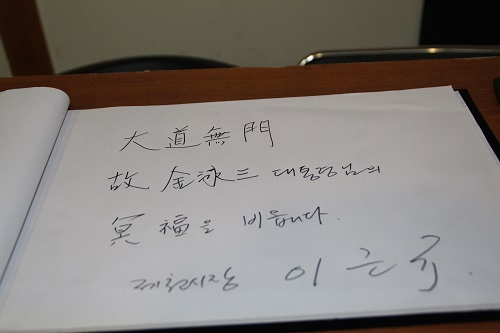 大道無門
故 金泳三 대통령님의
冥福을 비옵니다.
제천시장 이근규.